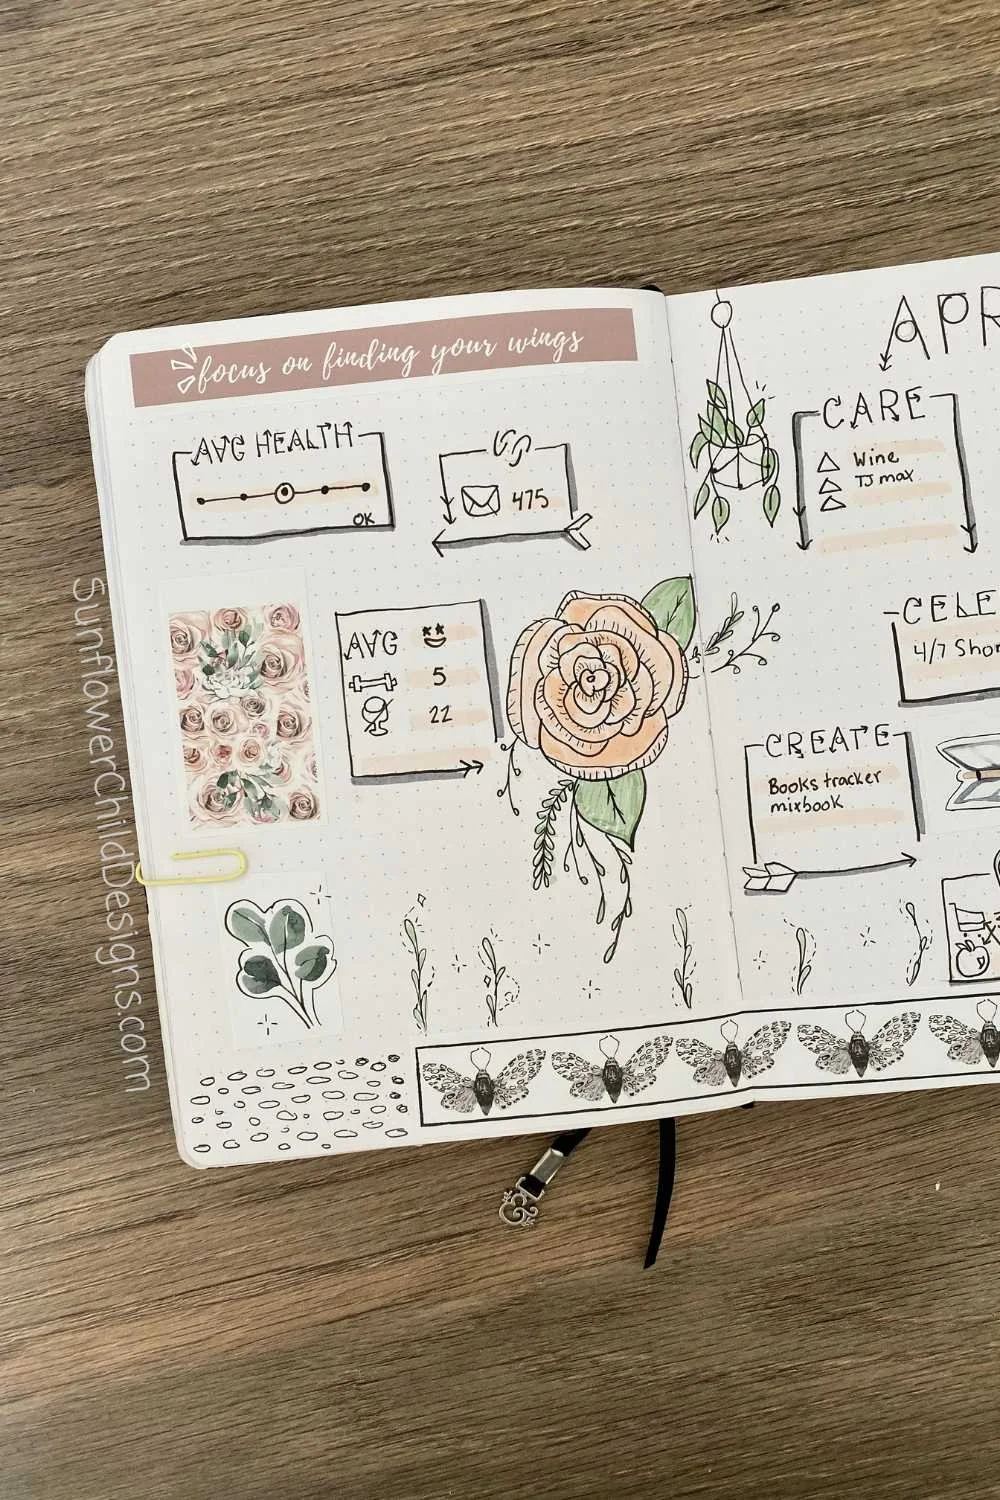 focus on finding your wings
AVG HEALTH
OK
475
AVG
5
22
APR
CARE
Wine
TJ max
CELE
4/7 Shor
CREATE
Books tracker
mixbook
SunflowerChildDesigns.com